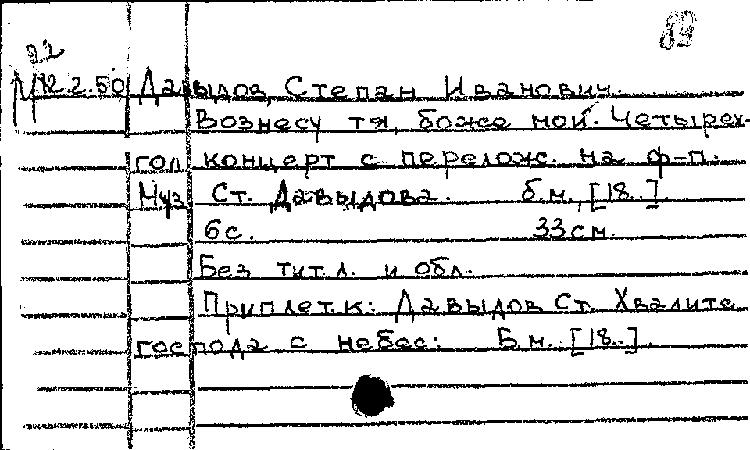 89
22
12.2.50 Давыдов, Степан Иванович.
Вознесу тя, боже мой. Четырех-
гол. концерт с перелож. на ф-п.
Муз. Ст. Давыдова. б.м., [18..].
6с. 33см.
Без тит.л. и обл.
Приплет.к: Давыдов Ст. Хвалите
господа с небес: Б.м. [18..].